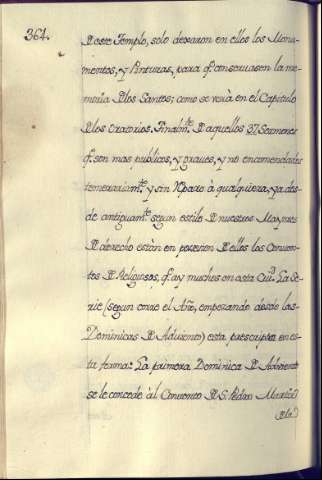 364.
D este Templo, solo dexaron en ellos los Monu-
mentos, y Pinturas, para q.e conseruasen la me-
moria D los Santos; como se verà en el Capitulo
D los Oratorios. Finalm.te D aquellos 37. Sermones
q.e son mas publicos, y graues, y no encomendados
temerariam.te y sin Reparo à qualquiera, ya des-
de antiguam.te segun estilo D nuestros Mayores
D derecho estàn en posesion D ellos los Conven-
tos D Religiosos, q.e ay muchos en esta Ciu.d La Se-
rie (segun corre el Año, empezando desde las
Dominicas D Adviento) esta prescripta en es-
ta forma: La primera Dominica D Adviento
se le concede àl Convento D S. Pedro Martir